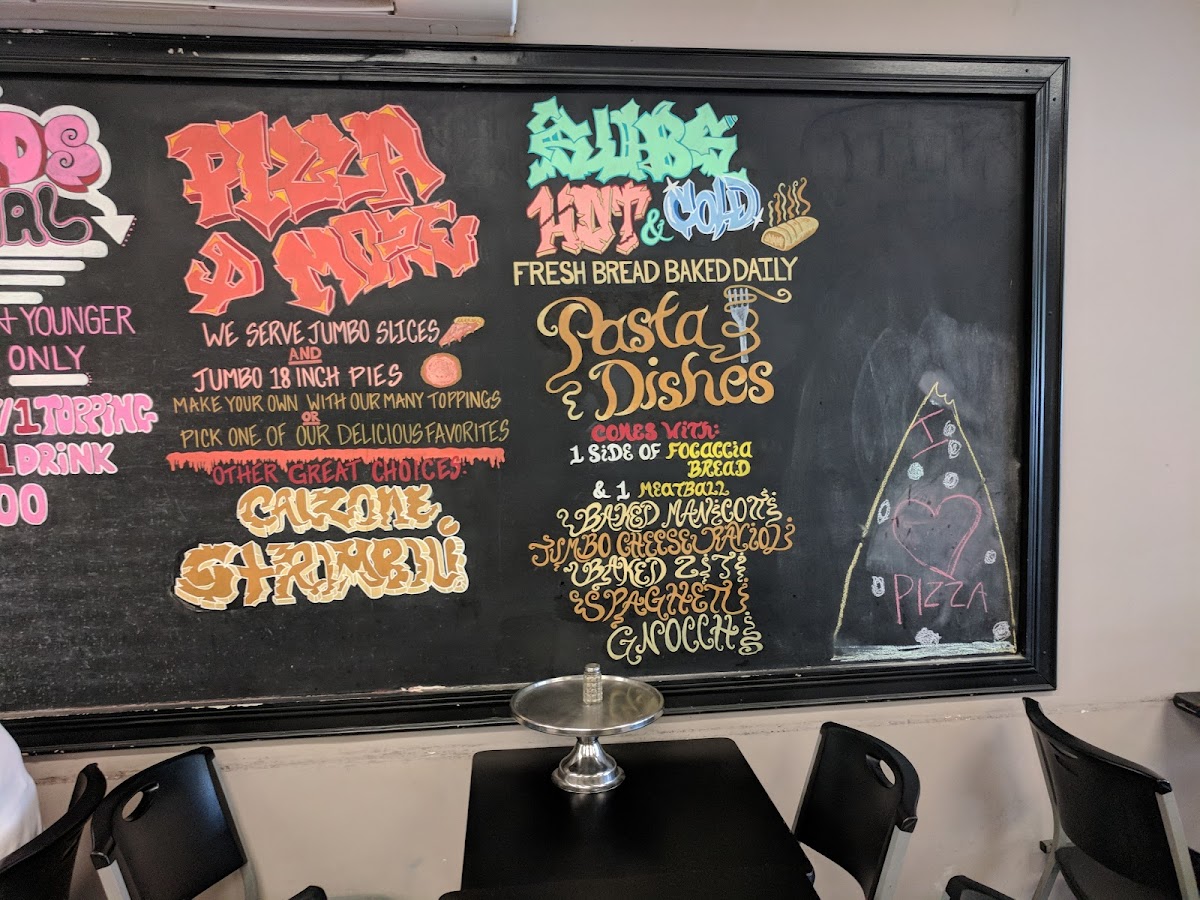 DS
AL
+ YOUNGER
ONLY
/1 TOPPING
1 DRINK
00
PIZZA
& MORE
WE SERVE JUMBO SLICES
AND
JUMBO 18 INCH PIES
MAKE YOUR OWN WITH OUR MANY TOPPINGS
OR
PICK ONE OF OUR DELICIOUS FAVORITES
OTHER GREAT CHOICES:
CALZONE
STROMBOLI
SUBS
HOT & COLD
FRESH BREAD BAKED DAILY
Pasta
Dishes
COMES WITH:
1 SIDE OF FOCACCIA
BREAD
& 1 MEATBALL
BAKED MANICOTTI
JUMBO CHEESE RAVIOLI
BAKED ZITI
SPAGHETTI
GNOCCHI
I
PIZZA